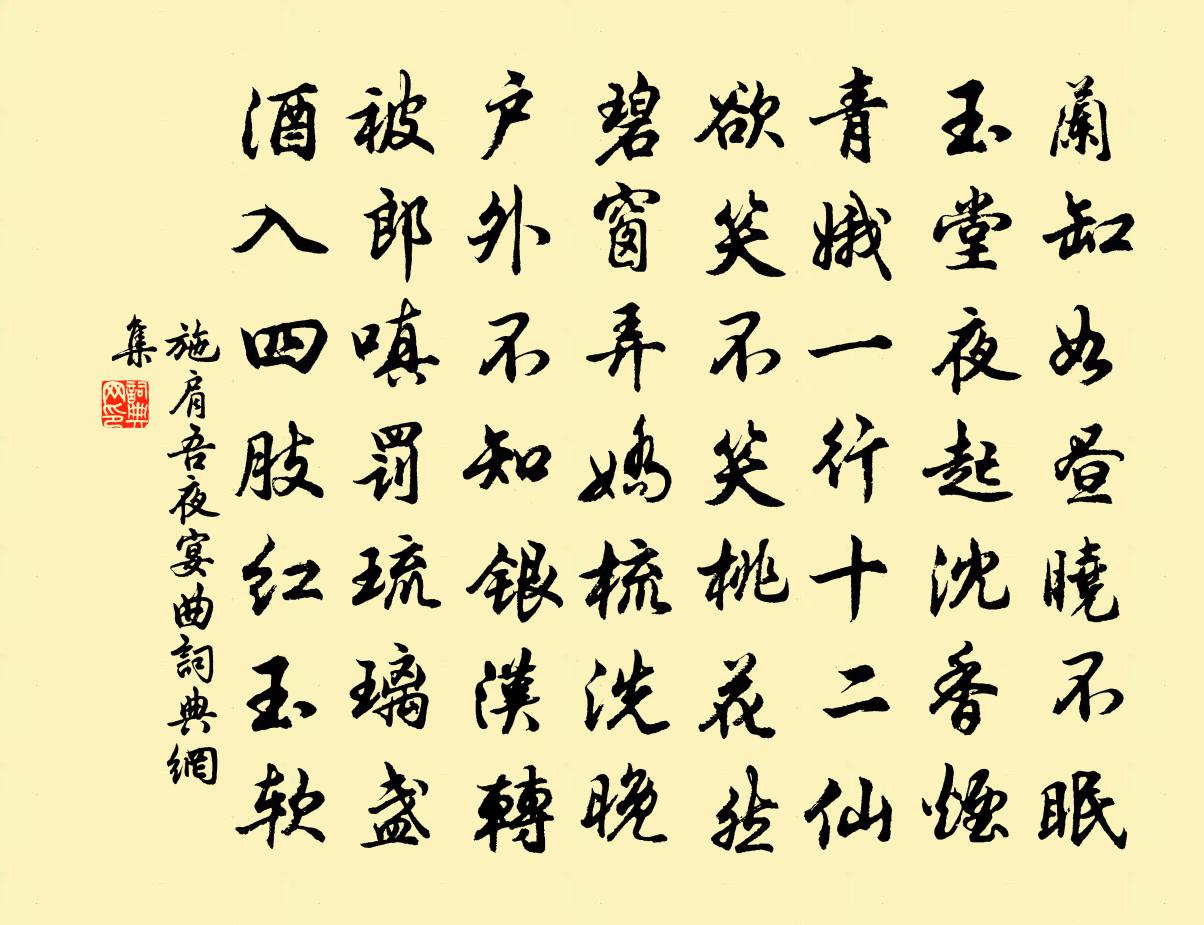 蘭缸如昼曉不眠
玉堂夜起沈香煙
青娥一行十二仙
欲笑不笑桃花然
碧窗弄嬌梳洗晚
户外不知銀漢轉
被郎嗔罰琉璃盏
酒入四肢红玉软
施肩吾夜宴曲詞典網
集
詞典网印